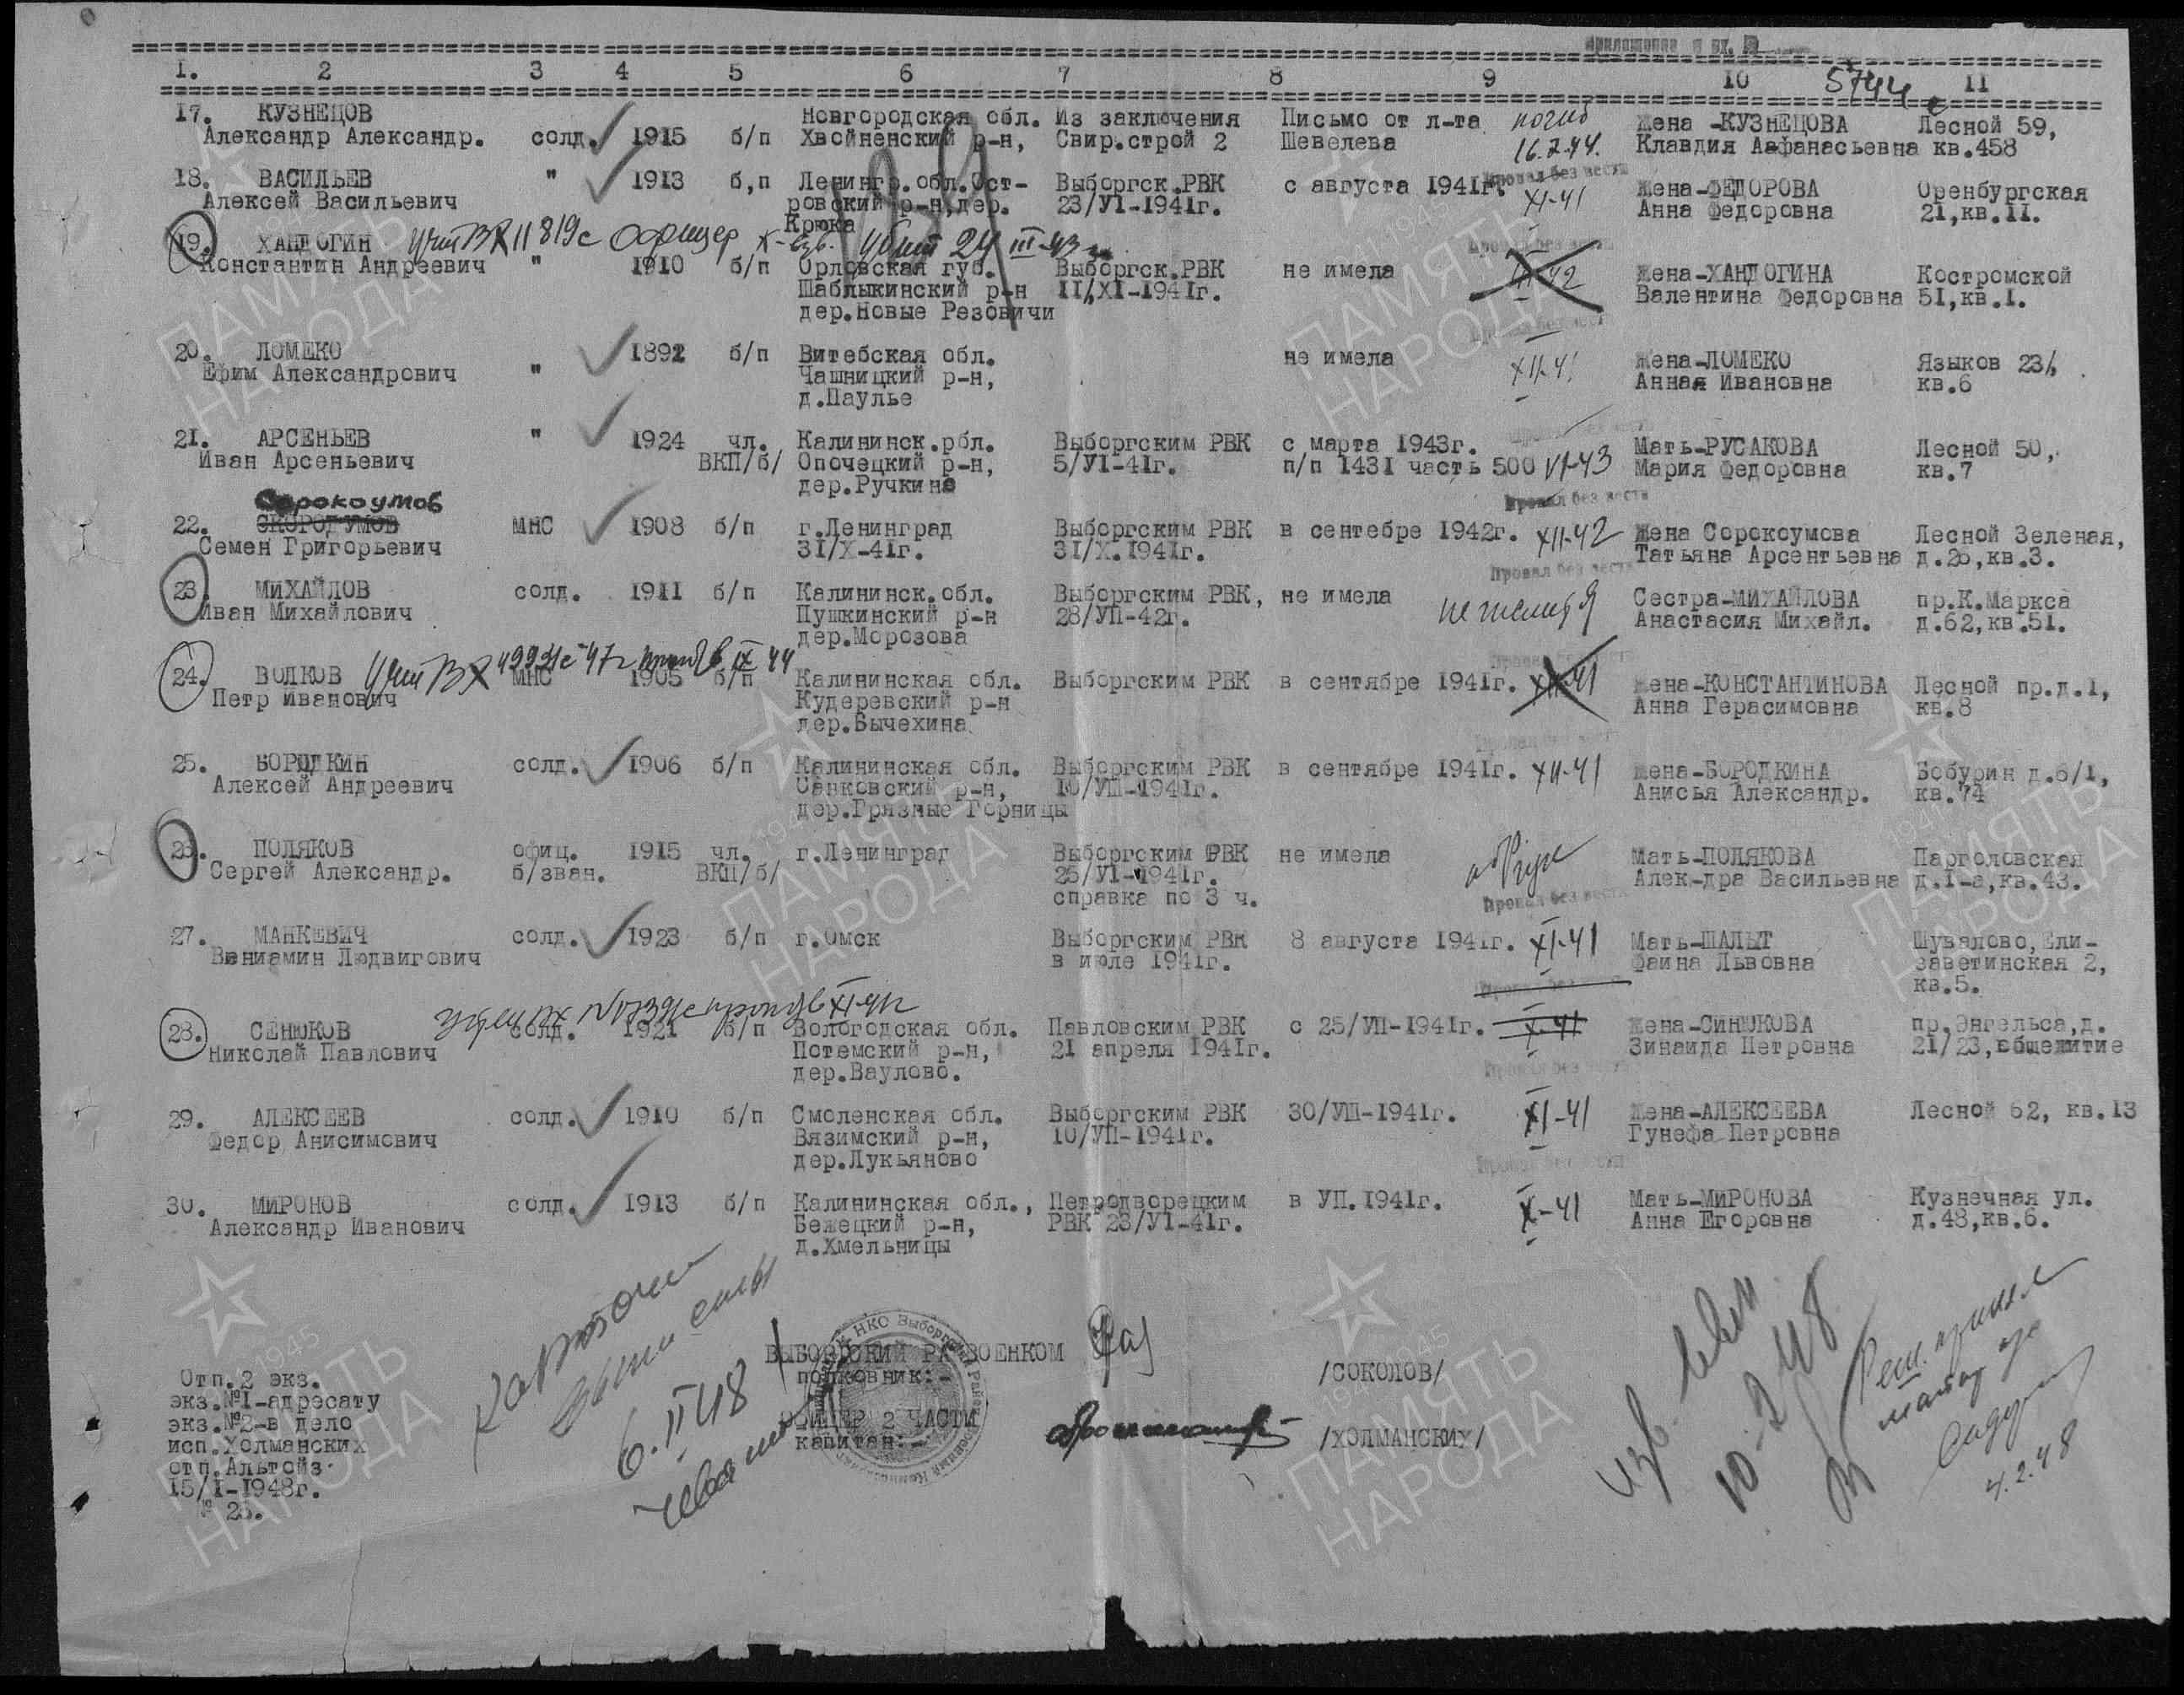 Приложение к вх. №
5744 с
1. 2 3 4 5 6 7 8 9 10 11
17. КУЗНЕЦОВ Новгородская обл. Из заключения Письмо от л-та погиб Жена -КУЗНЕЦОВА Лесной 59,
Александр Александр. солд. 1915 б/п Хвойненский р-н, Свир.строй 2 Шевелева 16.2.44. Клавдия Аафанасьевна кв.458
Пропал без вести
18. ВАСИЛЬЕВ " 1913 б,п Ленингр.обл.Ост- Выборгск.РВК с августа 1941г. XI-41 Жена-ФЕДОРОВА Оренбургская
Алексей Васильевич ровский р-н,дер. 23/УІ-1941г. Анна Федоровна 21,кв.ІІ.
Крюка
19. ХАНДОГИН учт ВХ 11819с офицер убит 24 III-43 г.
Пропал без вести
Константин Андреевич " 1910 б/п Орловская губ. Выборгск.РВК не имела Жена-ХАНДОГИНА Костромской
Шаблыкинский р-н ІІ/ХІ-1941г. Валентина Федоровна 51,кв.І.
дер.Новые Резовичи
Пропал без вести
20. ЛОМЕКО 1892 б/п Витебская обл. не имела XII-41 Жена-ЛОМЕКО Языков 23/,
Ефим Александрович " Чашницкий р-н, Анная Ивановна кв.6
д.Паулье
21. АРСЕНЬЕВ " 1924 чл. Калининск.рбл. Выборгским РВК с марта 1943г. Мать-РУСАКОВА Лесной 50,
Иван Арсеньевич ВКП/б/ Опочецкий р-н, 5/УІ-41г. п/п 1431 часть 500 VI-43 Мария Федоровна кв.7
дер.Ручкине
Сорокоумов
Пропал без вести
22. СКОРОДУМОВ МНС 1908 б/п г.Ленинград Выборгским РВК в сентебре 1942г. XII-42 Жена Сорокоумова Лесной Зеленая,
Семен Григорьевич 31/Х-41г. 31/Х.1941г. Татьяна Арсентьевна д.26,кв.3.
Пропал без вести
23. МИХАЙЛОВ солд. 1911 б/п Калининск.обл. Выборгским РВК, не имела Сестра-МИХАЙЛОВА пр.К.Маркса
Иван Михайлович Пушкинский р-н 28/УП-42г. Анастасия Михайл. д.62,кв.51.
дер.Морозова
учт ВХ
24. ВОЛКОВ МНС 1905 б/п Калининская обл. Выборгским РВК в сентябре 1941г. XII-41 Жена-КОНСТАНТИНОВА Лесной пр.д.1,
Петр Иванович Кудеревский р-н Анна Герасимовна кв.8
дер.Бычехина
Пропал без вести
25. БОРОДКИН солд. 1906 б/п Калининская обл. Выборгским РВК в сентябре 1941г. XII-41 Жена-БОРОДКИНА Бобурин д.6/1,
Алексей Андреевич Санковский р-н, 10/УШ-1941г. Анисья Александр. кв.74
дер.Грязные Горницы
26. ПОЛЯКОВ офиц. 1915 чл. г.Ленинград Выборгским РВК не имела Мать-ПОЛЯКОВА Парголовская
Сергей Александр. б/зван. ВКП/б/ 25/УІ-1941г. Алек-дра Васильевна д.І-а,кв.43.
справка по 3 ч.
Пропал без вести
27. МАНКЕВИЧ солд. 1923 б/п г.Омск Выборгским РВК 8 августа 1941г. XI-41 Мать-ШАЛЫТ Шувалово,Ели-
Вениамин Людвигович в июле 1941г. Фаина Львовна заветинская 2,
кв.5.
28. СЕНЮКОВ солд. 1921 б/п Вологодская обл. Павловским РВК с 25/УП-1941г. X-41 Жена-СИНЮКОВА пр.Энгельса,д.
Николай Павлович Потемский р-н, 21 апреля 1941г. Зинаида Петровна 21/23,общежитие
дер.Ваулово.
Пропал без вести
29. АЛЕКСЕЕВ солд. 1910 б/п Смоленская обл. Выборгским РВК 30/УШ-1941г. XI-41 Жена-АЛЕКСЕЕВА Лесной 62, кв.13
Федор Анисимович Вязимский р-н, 10/УП-1941г. Гунефа Петровна
дер.Лукьяново
Пропал без вести
30. МИРОНОВ солд. 1913 б/п Калининская обл., Петродворецким в УП.1941г. X-41 Мать-МИРОНОВА Кузнечная ул.
Александр Иванович Бежецкий р-н, РВК 23/УІ-41г. Анна Егоровна д.48,кв.6.
д.Хмельницы
6.II 48
10-2-48
4.2.48
ВЫБОРГСКИЙ РАЙВОЕНКОМ
полковник:- /СОКОЛОВ/
2 ЧАСТИ
капитан:- /ХОЛМАНСКИХ/
Отп.2 экз.
экз.№1-адресату
экз.№2-в дело
исп.Холманских
отп.Альтойз
15/І-1948г.
№ 23.
ПАМЯТЬ НАРОДА
1941-1945